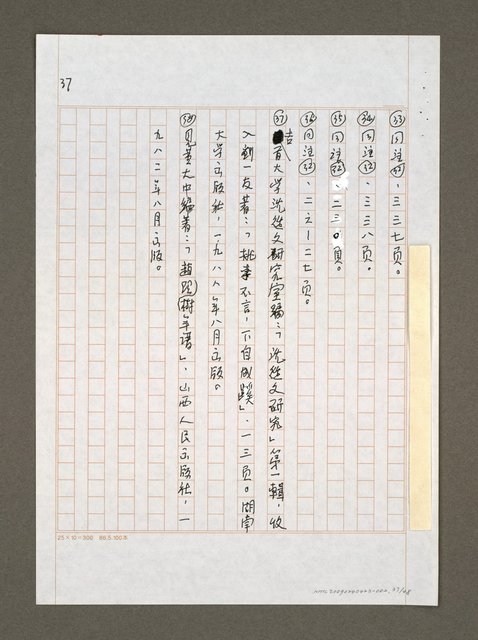 37
㉝同注㉜、三三七页。
㉞同注㉜、三三八页。
㉟同注㉜、二三〇页。
㊱同注㉜、二六—二七页。
㊲吉首大学沈从文研究室编:「沈從文研究」第一輯,收
入劉一友著:「桃李不言,下自成蹊」、一三页。湖南
大学出版社,一九八八年八月出版。
㊳見董大中編著:「趙树年谱」、山西人民出版社,一
九八二年八月出版。
25×10=300 86.5.100本
37/48